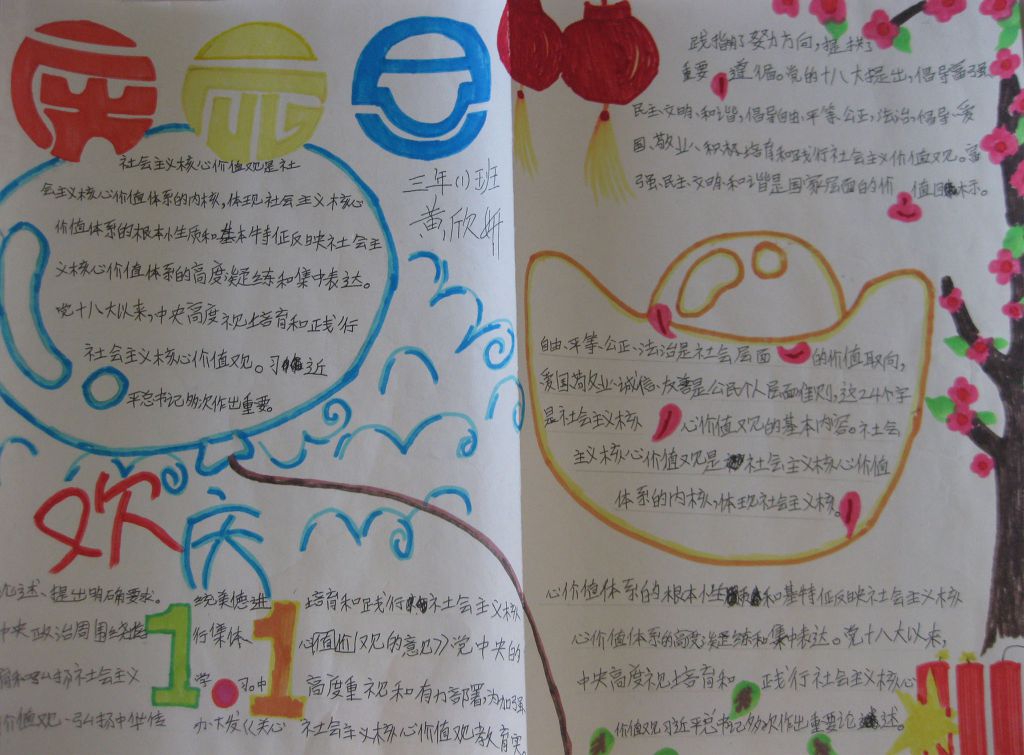 庆元旦
社会主义核心价值观是社
会主义核心价值体系的内核,体现社会主义核心
价值体系的根本性质和基本特征反映社会主
义核心价值体系的高度凝练和集中表达。
党十八大以来,中央高度视培育和践行
社会主义核心价值观。习近
平总书记多次作出重要。
三年(1)班
黄欣妍
欢庆
1.1
论述、提出明确要求。
中央政治局围绕
育和弘扬社会主义
价值观、弘扬中华传
统美德进
行集体
学习。中
办大发《关心
培育和践行社会主义核
心值价观的意见》党中央的
高度重视和有力部署,为加强
社会主义核心价值观教育实
践指明了努力方向,提供了
重要遵循。党的十八大提出,倡导富强
民主、文明、和谐,倡导自由、平等、公正、法治,倡导、爱
国、敬业、积极培育和践行社会主义价值观。富
强、民主、文明、和谐是国家层面的价值目标。
自由、平等、公正、法治是社会层面的价值取向,
爱国敬业、诚信、友善是公民个人层面准则,这24个字
是社会主义核心价值观的基本内容。社会
主义核心价值观是社会主义核心价值
体系的内核,体现社会主义核。
心价值体系的根本性和基特征反映社会主义核
心价值体系的高度凝练和集中表达。党十八大以来,
中央高度视培育和践行社会主义核心
价值观习近平总书记多次作出重要论述。